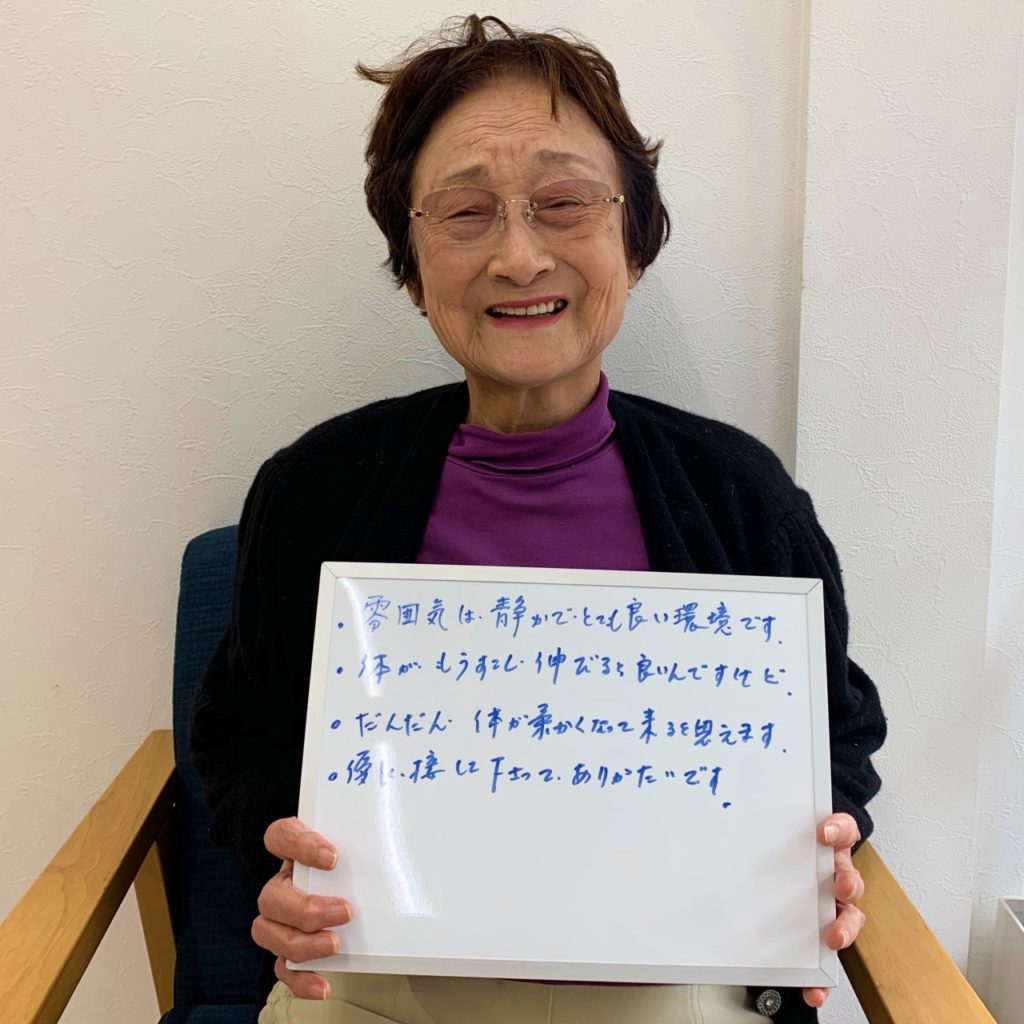 ・雰囲気は、静かで、とても良い環境です。
・体が、もうすこし、伸びると良いんですけど。
・だんだん、体が柔かくなって来ると思えます。
・優しく、接して下さって、ありがたいです。